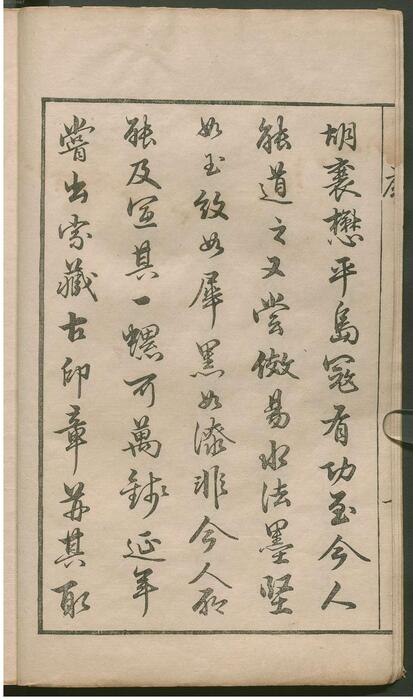 胡襄懋平島寇有功至今人
能道之又嘗倣易水法墨堅
如玉紋如犀黑如漆非今人所
能及宜其一螺可萬錢延年
嘗出家藏古印章并其取